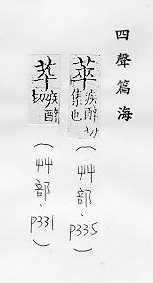 四聲篇海
萃疾醉切集也
(艸部.P335)
疾醉切
(艸部.P331)